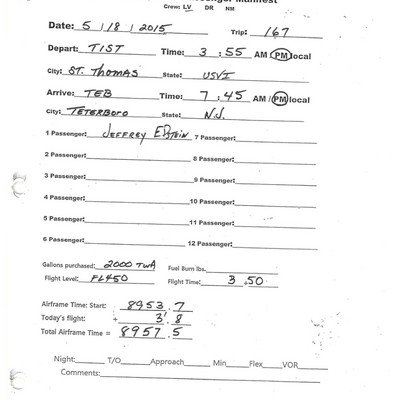 Passenger Manifest
Crew: LV DR NM
Date: 5 / 8 / 2015 Trip: 167
Depart: TIST Time: 3 : 55 AM / PM local
City: ST. THOMAS State: USVI
Arrive: TEB Time: 7 : 45 AM / PM local
City: TETERBORO State: N.J.
1 Passenger: JEFFREY EPSTEIN 7 Passenger:
2 Passenger: 8 Passenger:
3 Passenger: 9 Passenger:
4 Passenger: 10 Passenger:
5 Passenger: 11 Passenger:
6 Passenger: 12 Passenger:
Gallons purchased: 2000 TWA Fuel Burn lbs.
Flight Level: FL450 Flight Time: 3 .50
Airframe Time: Start: 8953 . 7
Today's flight: + 3 . 8
Total Airframe Time = 8957 . 5
Night: T/O Approach Min Flex VOR
Comments: